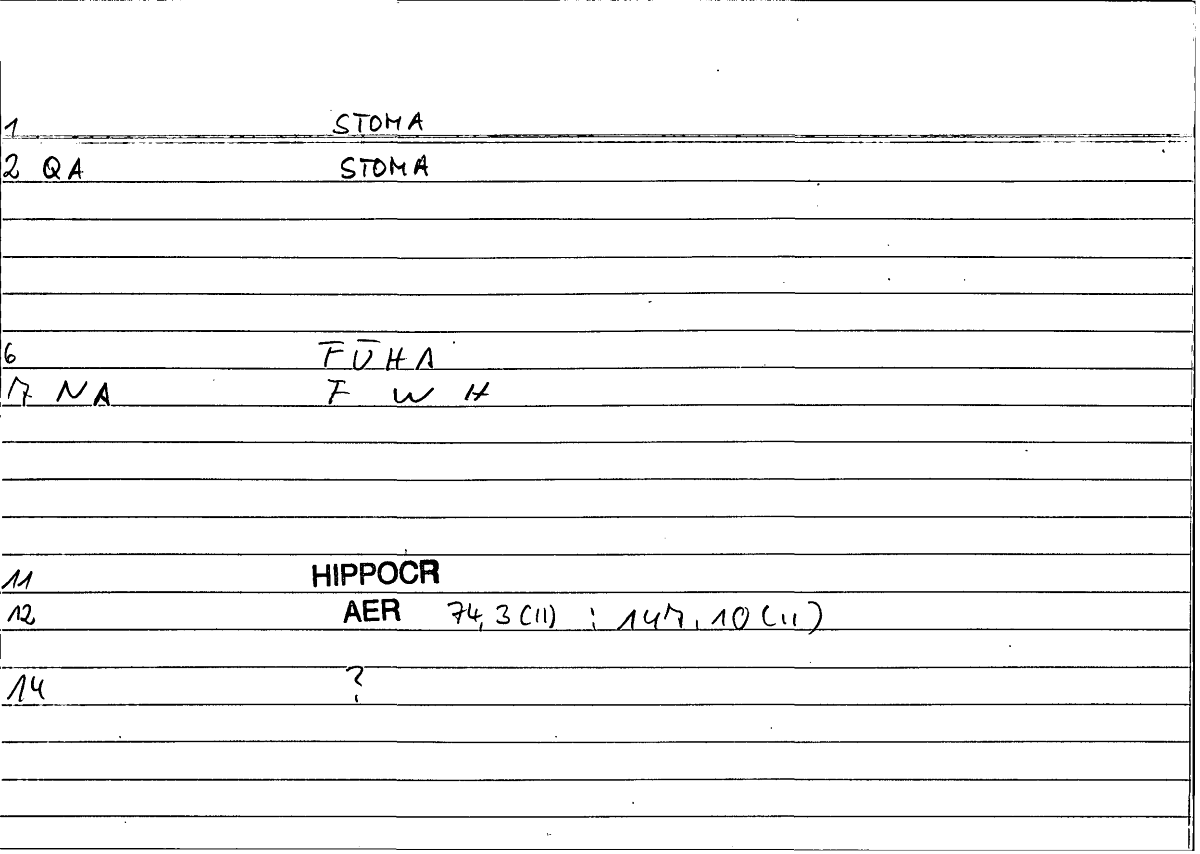 1 STOMA
2 QA STOMA
6 F̄ŪHA
7 NA F W H
11 HIPPOCR
12 AER 74,3 (II) : 147,10 (II)
14 ?